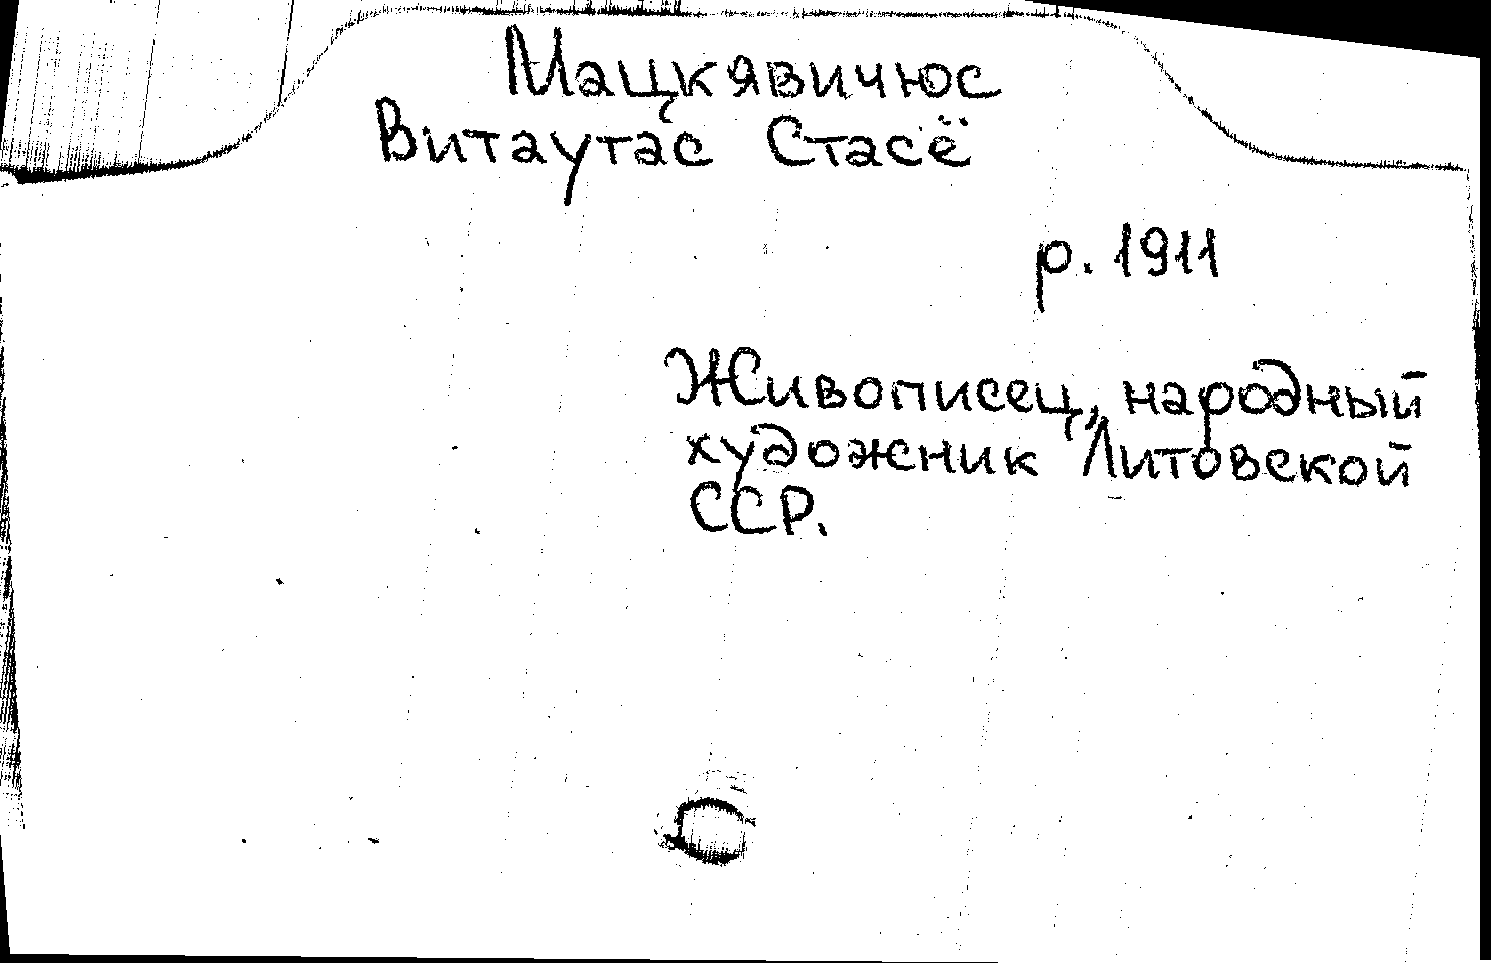 Мацкявичюс
Витаутас Стасё
р. 1911
Живописец, народный
художник Литовской
ССР.